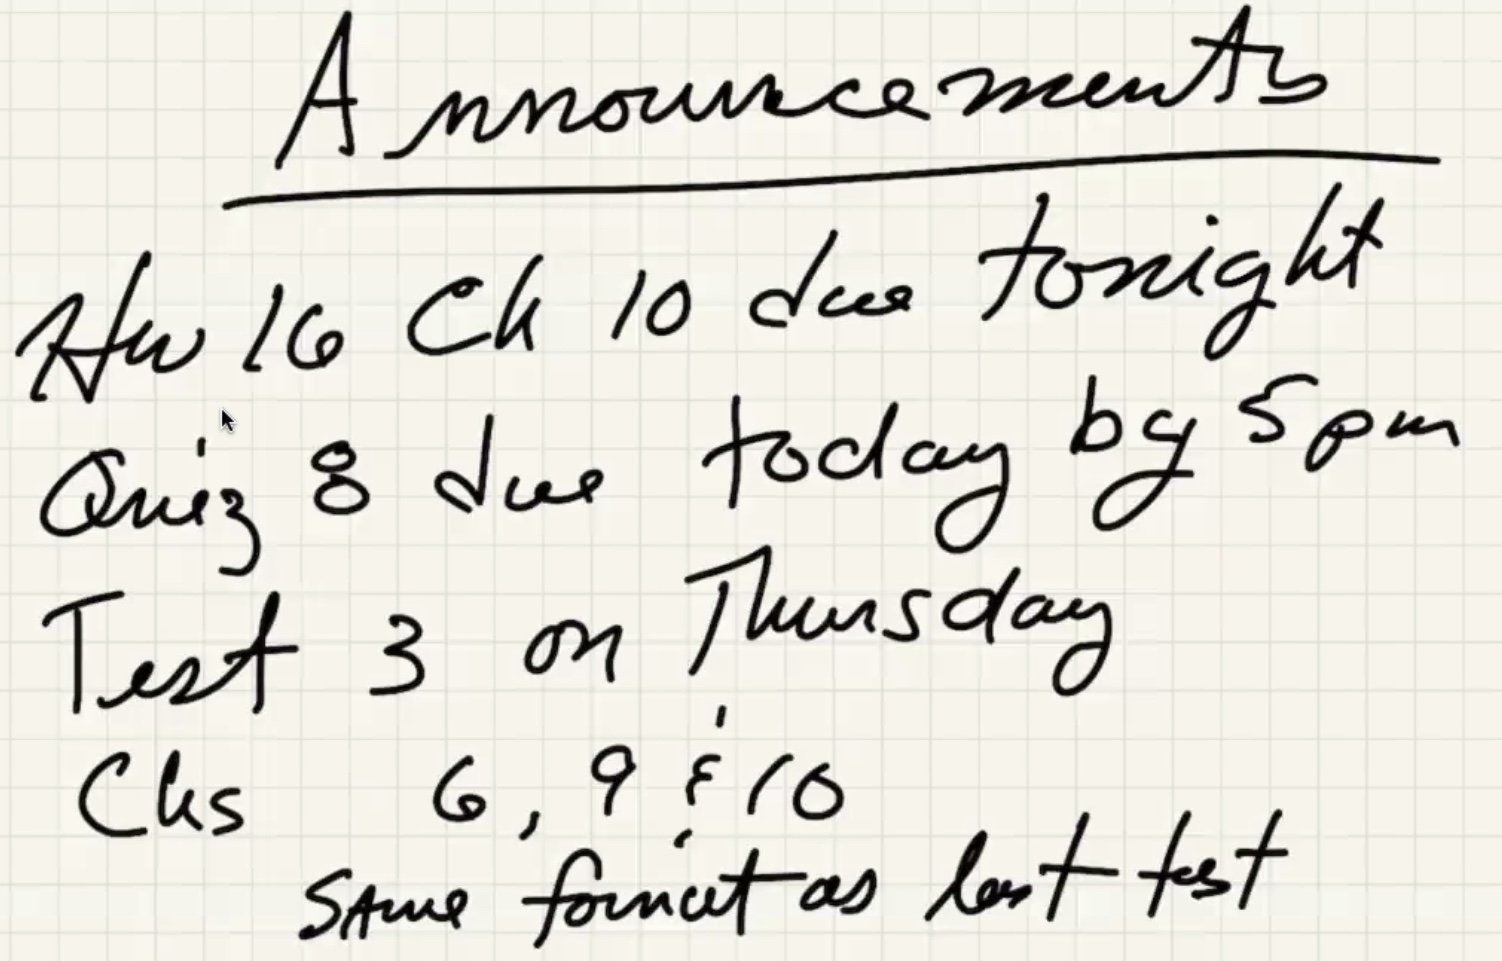 Announcements
Hw 16 Ch 10 due tonight
Quiz 8 due today by 5pm
Test 3 on Thursday
Chs 6, 9 & 10
SAme format as last test